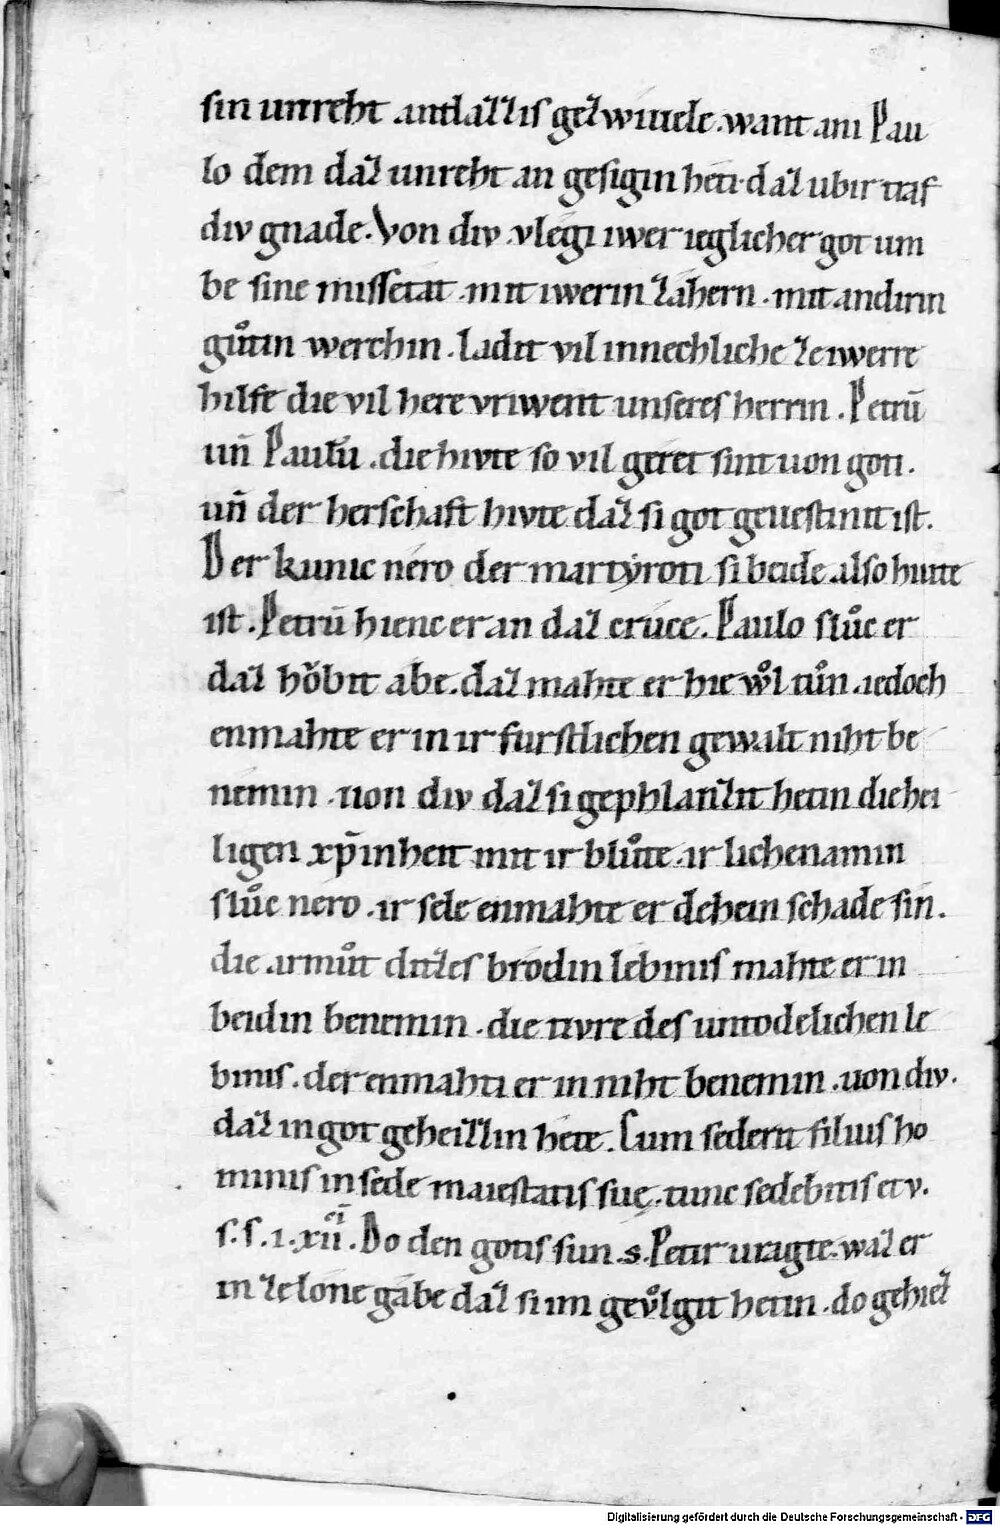 sin unreht antlazzis gezwiuele. want ani Pau
lo dem daz unreht an gesigin heti. daz ubir traf
div gnade. Von div vlegi iwer ieglicher got um
be sine missetat. mit iwerin zahern. mit andirin
gůtin werchin. ladit vil innechliche ze iwerre
hilfe die vil here vriwent unseres herrin. Petrū
uñ Paulū. die hivte so vil geret sint uon goti.
uñ der herschaft hivte daz si got geuestinit ist.
Der kunic nero der martyroti si beide. also hiute
ist. Petrū hienc er an daz cruce. Paulo slůc er
daz hǒbit abe. daz mahte er hie wǒl tůn. iedoch
enmahte er in ir furstlichen gewalt niht be
nemin. uon div daz si gephlanzit hetin die hei
ligen xp̄inheit mit ir blůte. ir lichenamin
slůc nero. ir sele enmahte er dehein schade sin.
die armůt ditzes brodin lebinis mahte er in
beidin benemin. die tivre des untodelichen le
binis. der enmahti er in niht benemin. uon div.
daz in got geheizzin hete. Cum sederit filius ho
minis in sede maiestatis suę. tunc sedebitis et v.
s. s. i. xii. Do den gotis sun .s. Petir uragte. waz er
in ze lone gabe daz si im geuǒlgit hetin. do gehiez